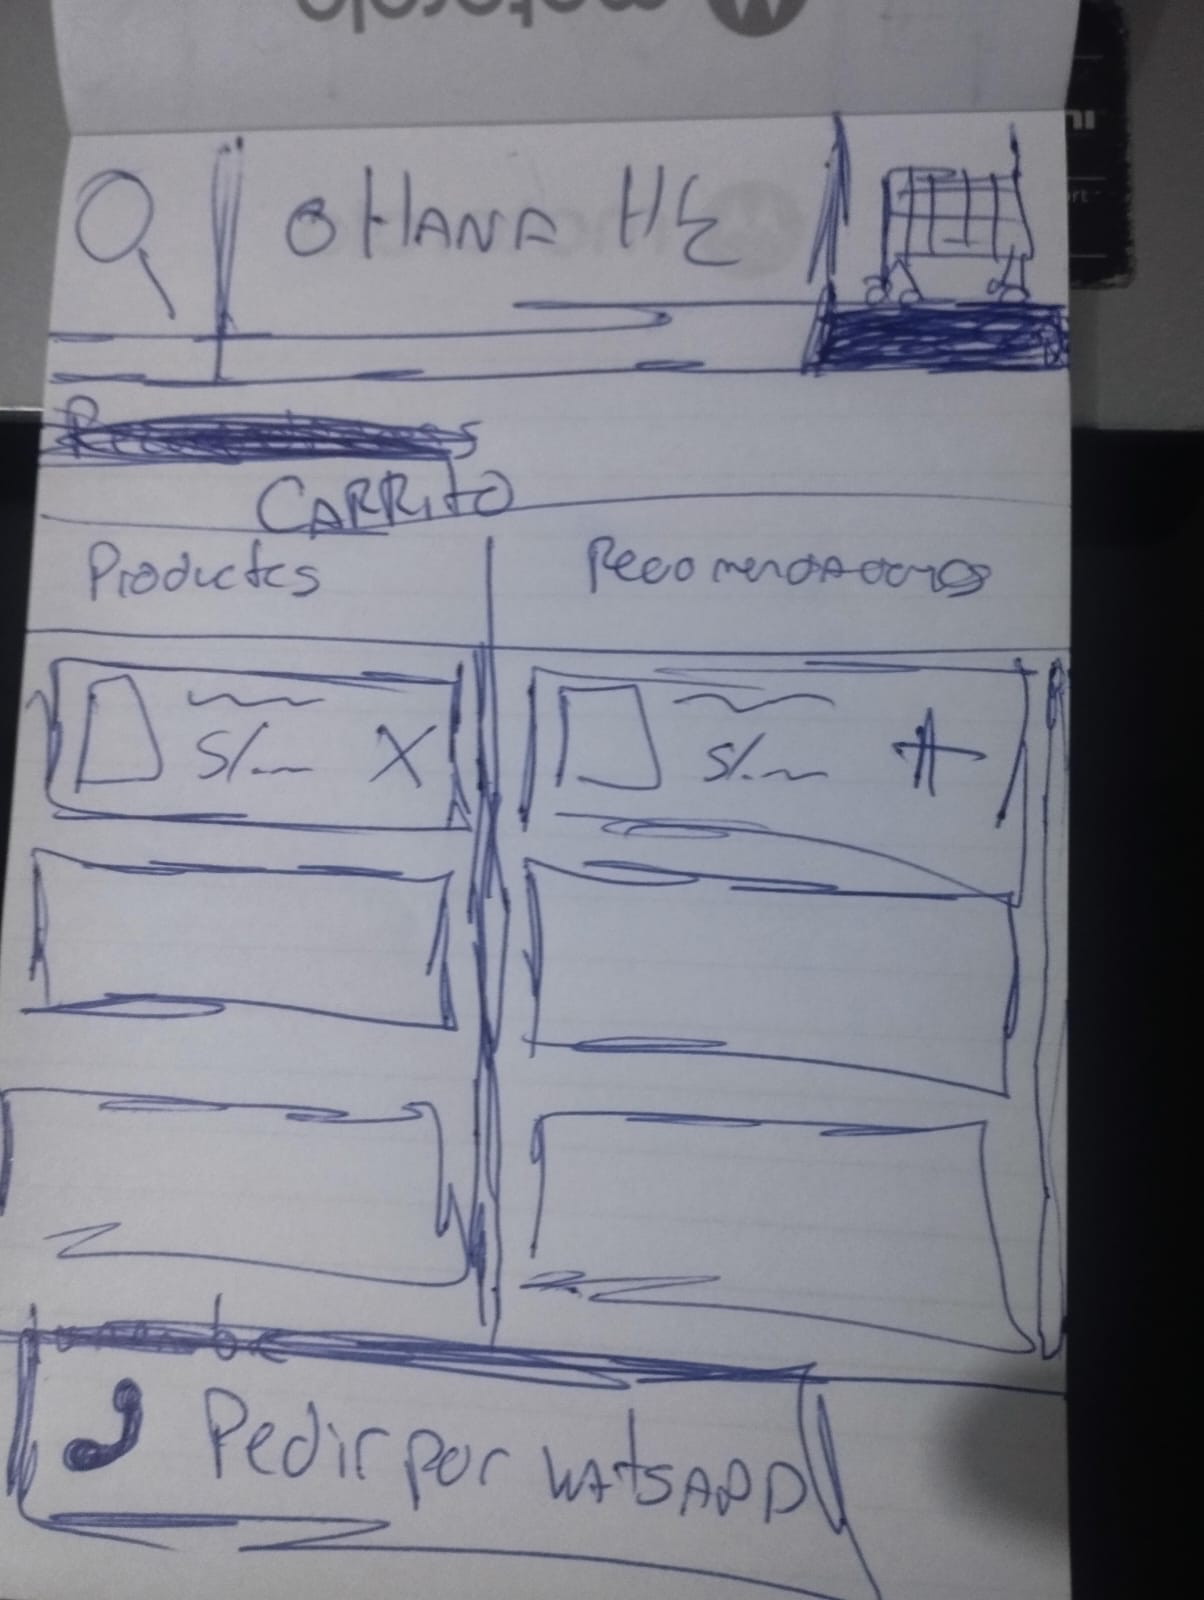 motorola
OHANA HE
CARRITO
Productos
Recomendaciones
S/.
X
S/.
+
Pedir por WATSAPP